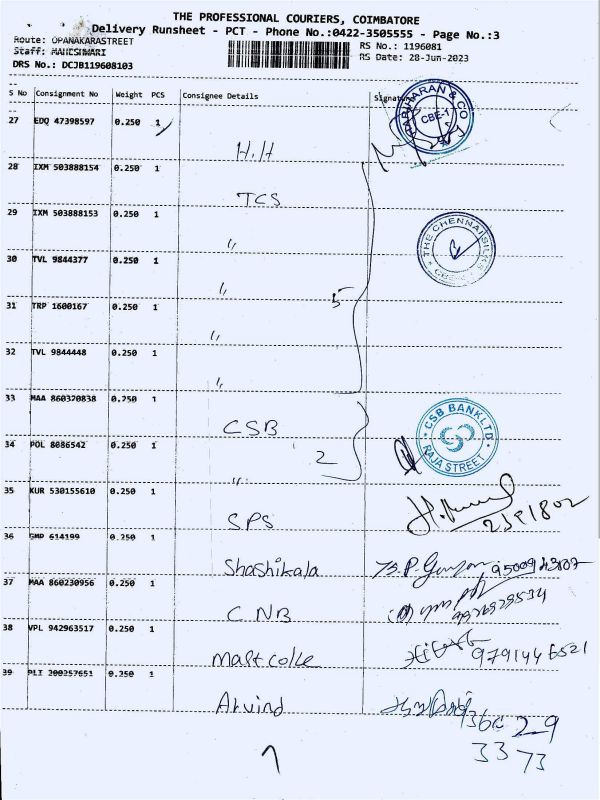 THE PROFESSIONAL COURIERS, COIMBATORE
Delivery Runsheet - PCT - Phone No.:0422-3505555 - Page No.:3
Route: OPANAKARASTREET
RS No.: 1196081
Staff: MAHESHWARI
RS Date: 28-Jun-2023
DRS No.: DCJB119608103
S No Consignment No Weight PCS Consignee Details Signature
27 EDQ 47398597 0.250 1
H.H
& CO
CBE-1
28 IXM 503888154 0.250 1
TCS
29 IXM 503888153 0.250 1
"
THE CHENNAI SILKS
30 TVL 9844377 0.250 1
"
5
31 TRP 1600167 0.250 1
"
32 TVL 9844448 0.250 1
"
33 MAA 860320838 0.250 1
CSB
CSB BANK LTD
RAJA STREET
34 POL 8086542 0.250 1
2
"
35 KUR 530155610 0.250 1
SPS
2391802
36 GMP 614199 0.250 1
Shashikala
37 MAA 860230956 0.250 1
CNB
38 VPL 942963517 0.250 1
9791446521
39 PLI 200257651 0.250 1
Arvind
33 73